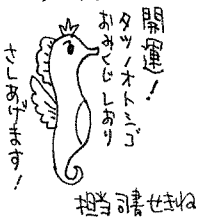 開運!
タツノオトシゴ
おみくじしおり
さしあげます!
担当司書せきね